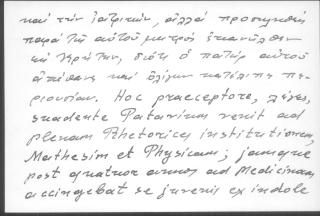 καὶ τὴν ἰατρικήν, ἀλλὰ προσκληθεὶς
παρὰ τοῦ αὐτοῦ μητρὸς ἐπανῆλθεν
Κρήτην, διότι ὁ πατὴρ αὐτοῦ
ἀπέθανε καὶ ὀλίγην κατέλιπε πε-
ριουσίαν. Hoc praeceptore, λέγει,
suadente Patavium venit ad
plenam Rhetorices institutionem,
Mathesim et Physicam; jamque
post quatuor annos ad Medicinam
accingebat se juvenis ex indole